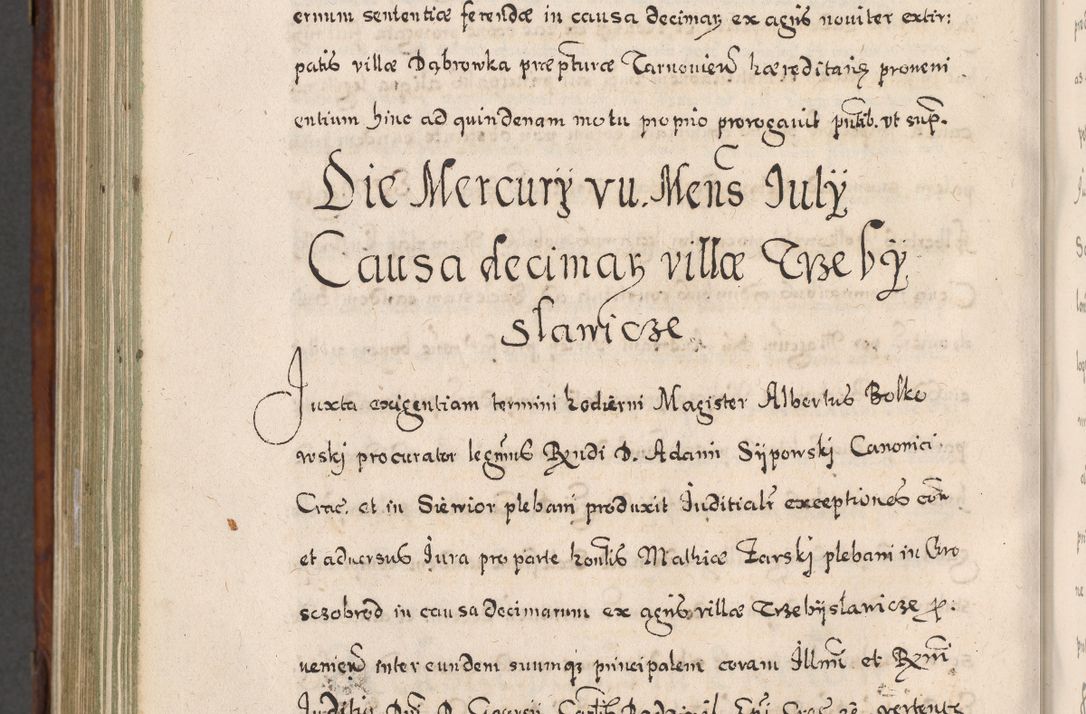 ernum sententiæ ferendæ in causa decimaꝝ ex agris noviter extir:
patis villæ Dąbrowka præpturæ Tarnovien hæreditariȩ proveni
entium hinc ad quindenam motu proprio prorogavit pntib. vt sup.
Die Mercurÿ vii. Mens Julÿ
Causa decimaꝝ villæ Trzebÿ
slawicze
Juxta exigentiam termini hodierni Magister Albertus Bolko
wskj procurator legmus Rndi D. Adami Sÿpowskj Canonici
Crac. et in Siewior plebani produxit Juditialr exceptiones con
et adversus Jura pro parte honlis Mathiæ Zarskj plebani in Gro
sczobrod in causa decimarum ex agris villæ Trzebÿslawicze p:
venien inter eundem suumqȝ principalem coram Illmi et Rmi
Juditio Dni D. Georgij Cardlis Radziwil Epi Crac